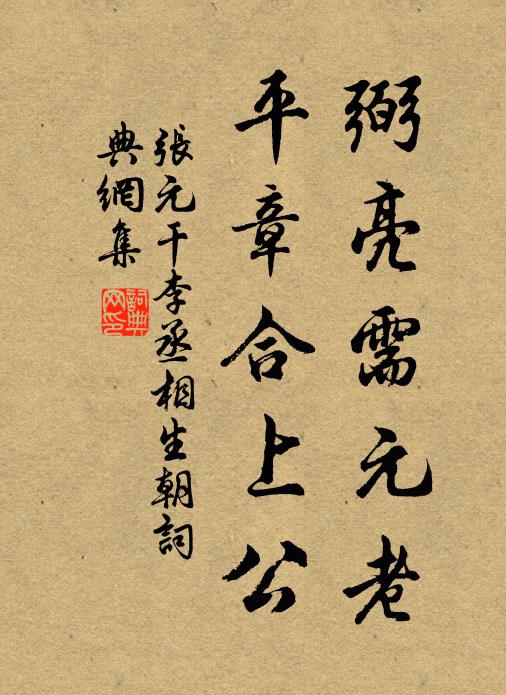 弼亮需元老
平章合上公
張元干李丞相生朝詞
典網集
詞典网印